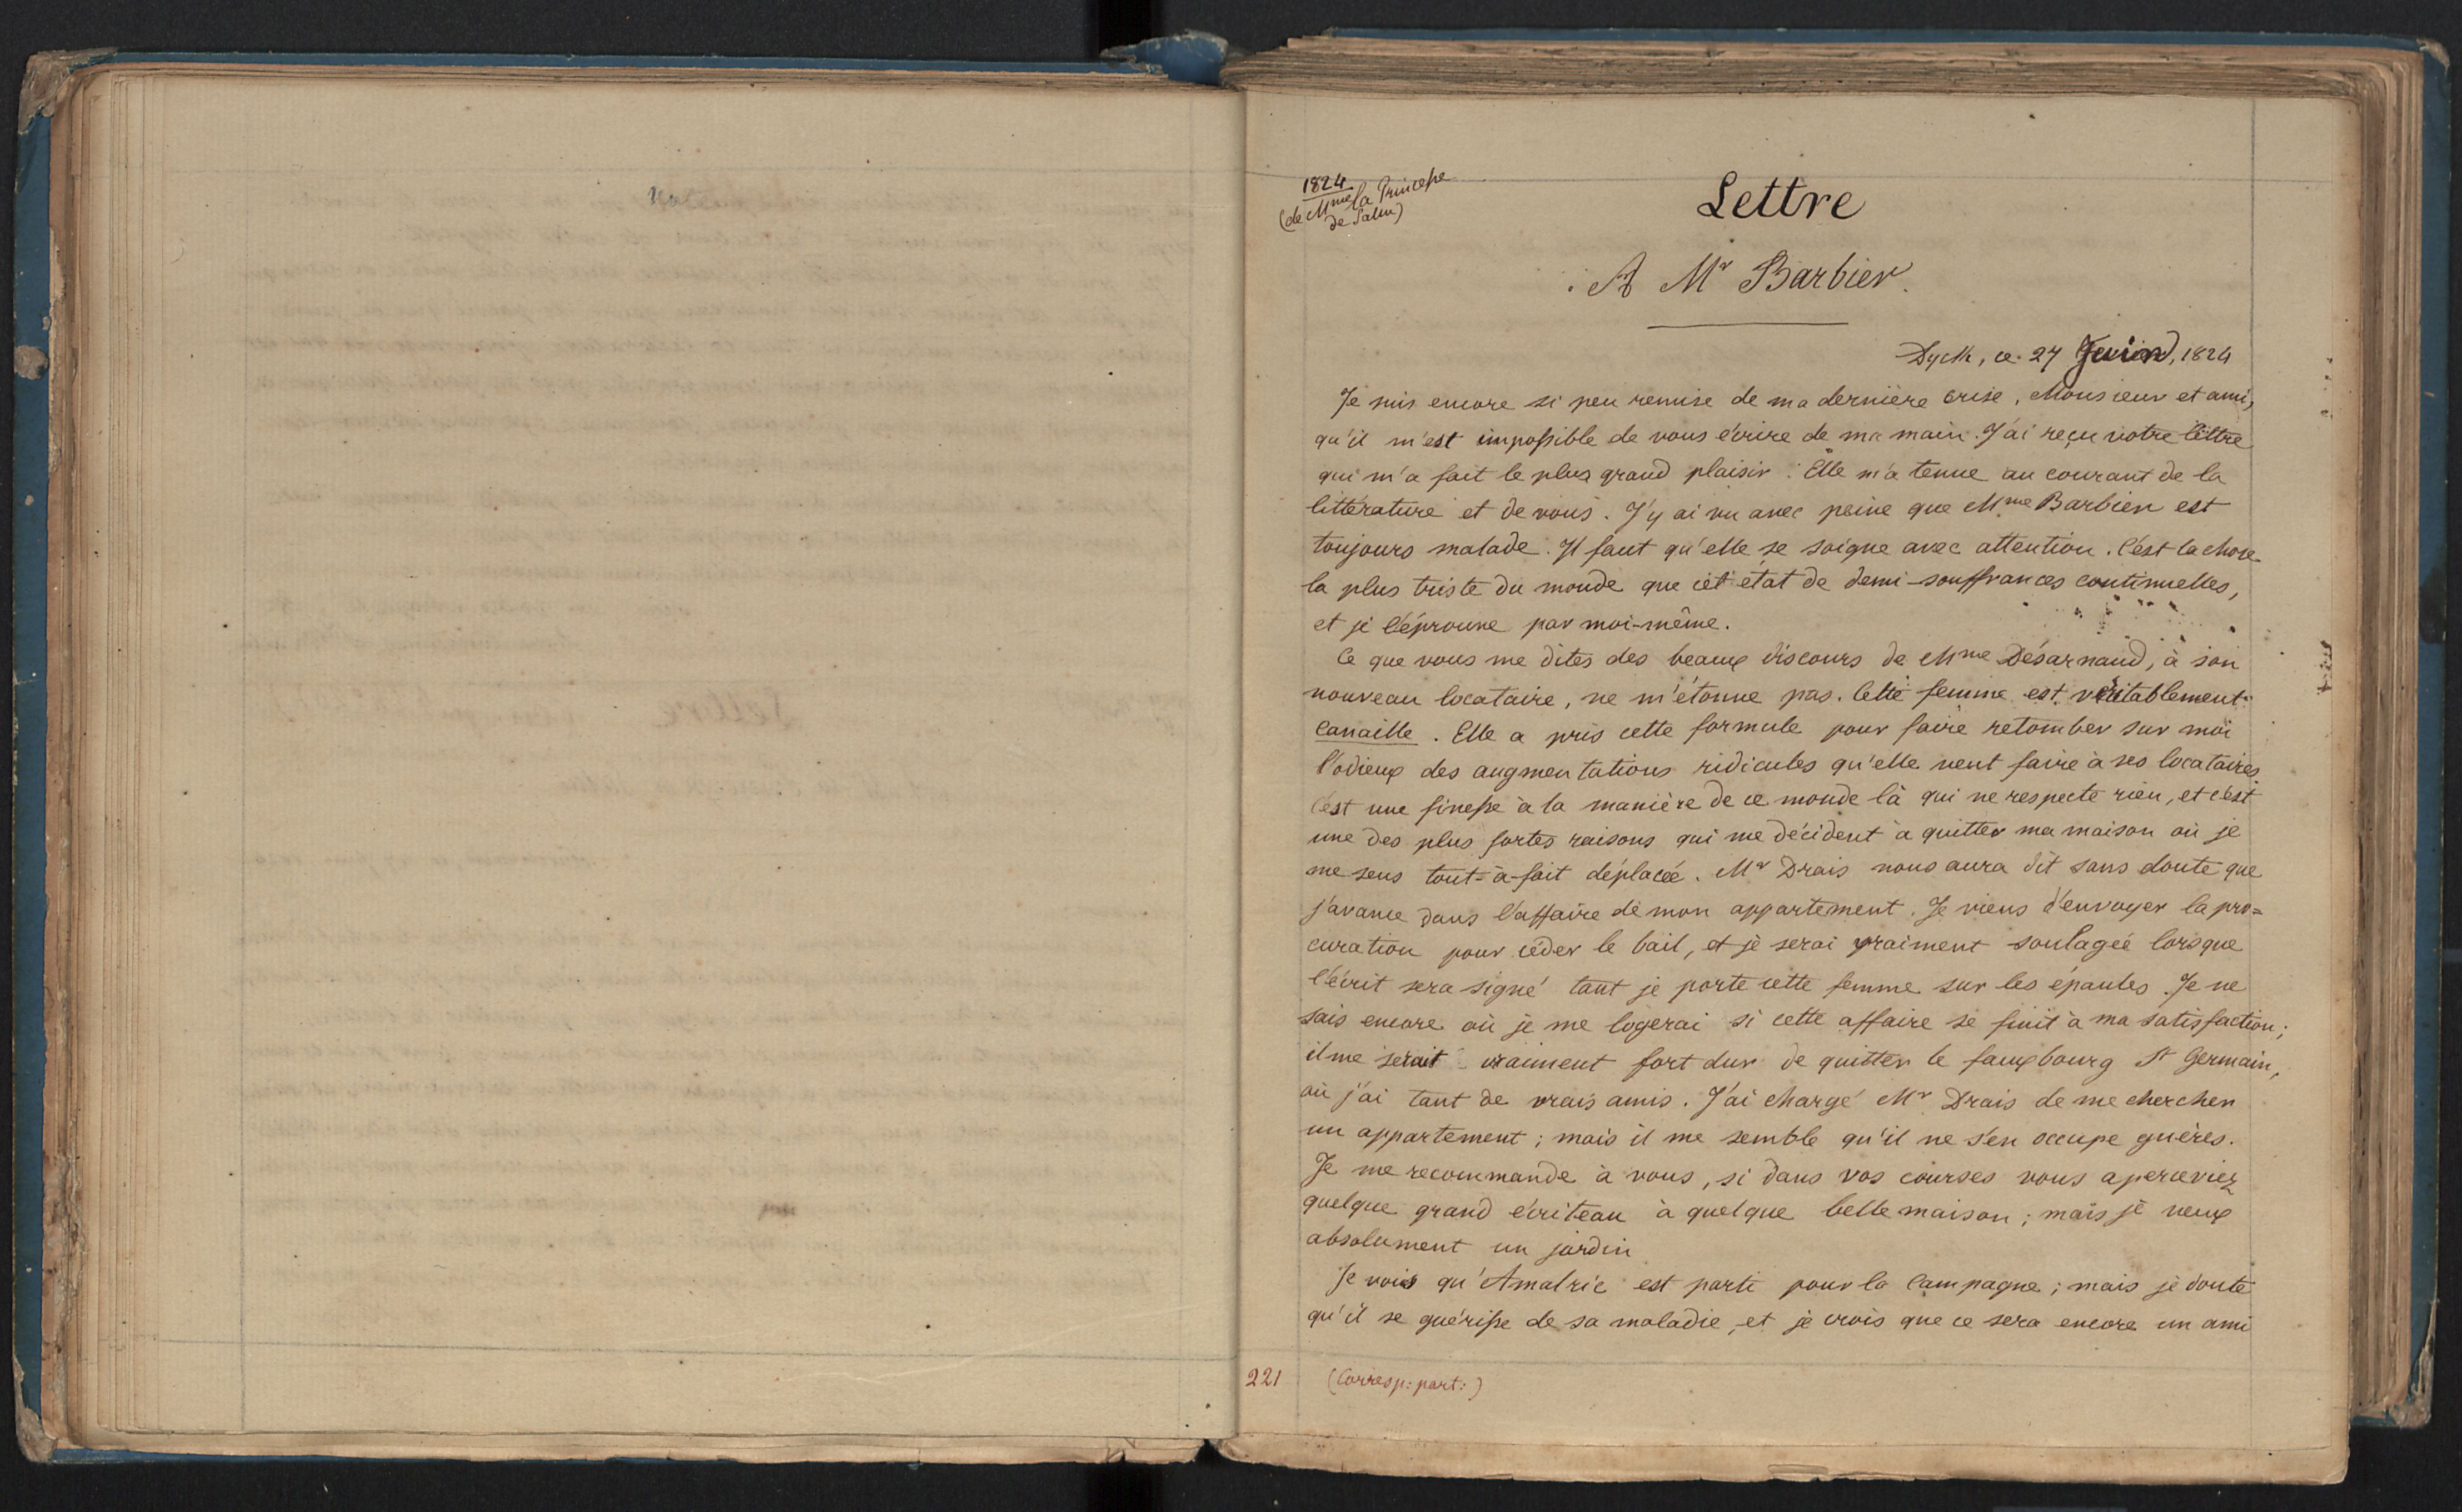 1824
(de Mme la Princesse
de Salm)
Lettre
A Mr Barbier.
Dyck, ce 27 Juin, 1824
Je suis encore si peu remise de ma dernière crise, Monsieur et ami,
qu'il m'est impossible de vous écrire de ma main. J'ai reçu votre lettre
qui m'a fait le plus grand plaisir. Elle m'a tenue au courant de la
littérature et de vous. J'y ai vu avec peine que Mme Barbier est
toujours malade. Il faut qu'elle se soigne avec attention. C'est la chose
la plus triste du monde que cet état de demi-souffrances continuelles,
et je l'éprouve par moi-même.
Ce que vous me dites des beaux discours de Mme Désarnaud, à son
nouveau locataire, ne m'étonne pas. Cette femme est véritablement
canaille. Elle a pris cette formule pour faire retomber sur moi
l'odieux des augmentations ridicules qu'elle veut faire à ses locataires.
C'est une finesse à la manière de ce monde là qui ne respecte rien, et c'est
une des plus fortes raisons qui me décident à quitter ma maison où je
me sens tout-à-fait déplacée. Mr Drais vous aura dit sans doute que
j'avance dans l'affaire de mon appartement. Je viens d'envoyer la pro=
curation pour céder le bail, et je serai vraiment soulagée lorsque
l'écrit sera signé tant je porte cette femme sur les épaules. Je ne
sais encore où je me logerai si cette affaire se finit à ma satisfaction;
il me serait vraiment fort dur de quitter le fauxbourg St Germain,
où j'ai tant de vrais amis. J'ai chargé Mr Drais de me chercher
un appartement; mais il me semble qu'il ne s'en occupe guères.
Je me recommande à vous, si dans vos courses vous aperceviez
quelque grand écriteau à quelque belle maison; mais je veux
absolument un jardin
Je vois qu'Amalric est parti pour la campagne; mais je doute
qu'il se guérisse de sa maladie, et je crois que ce sera encore un ami
221 (Corresp: part:)